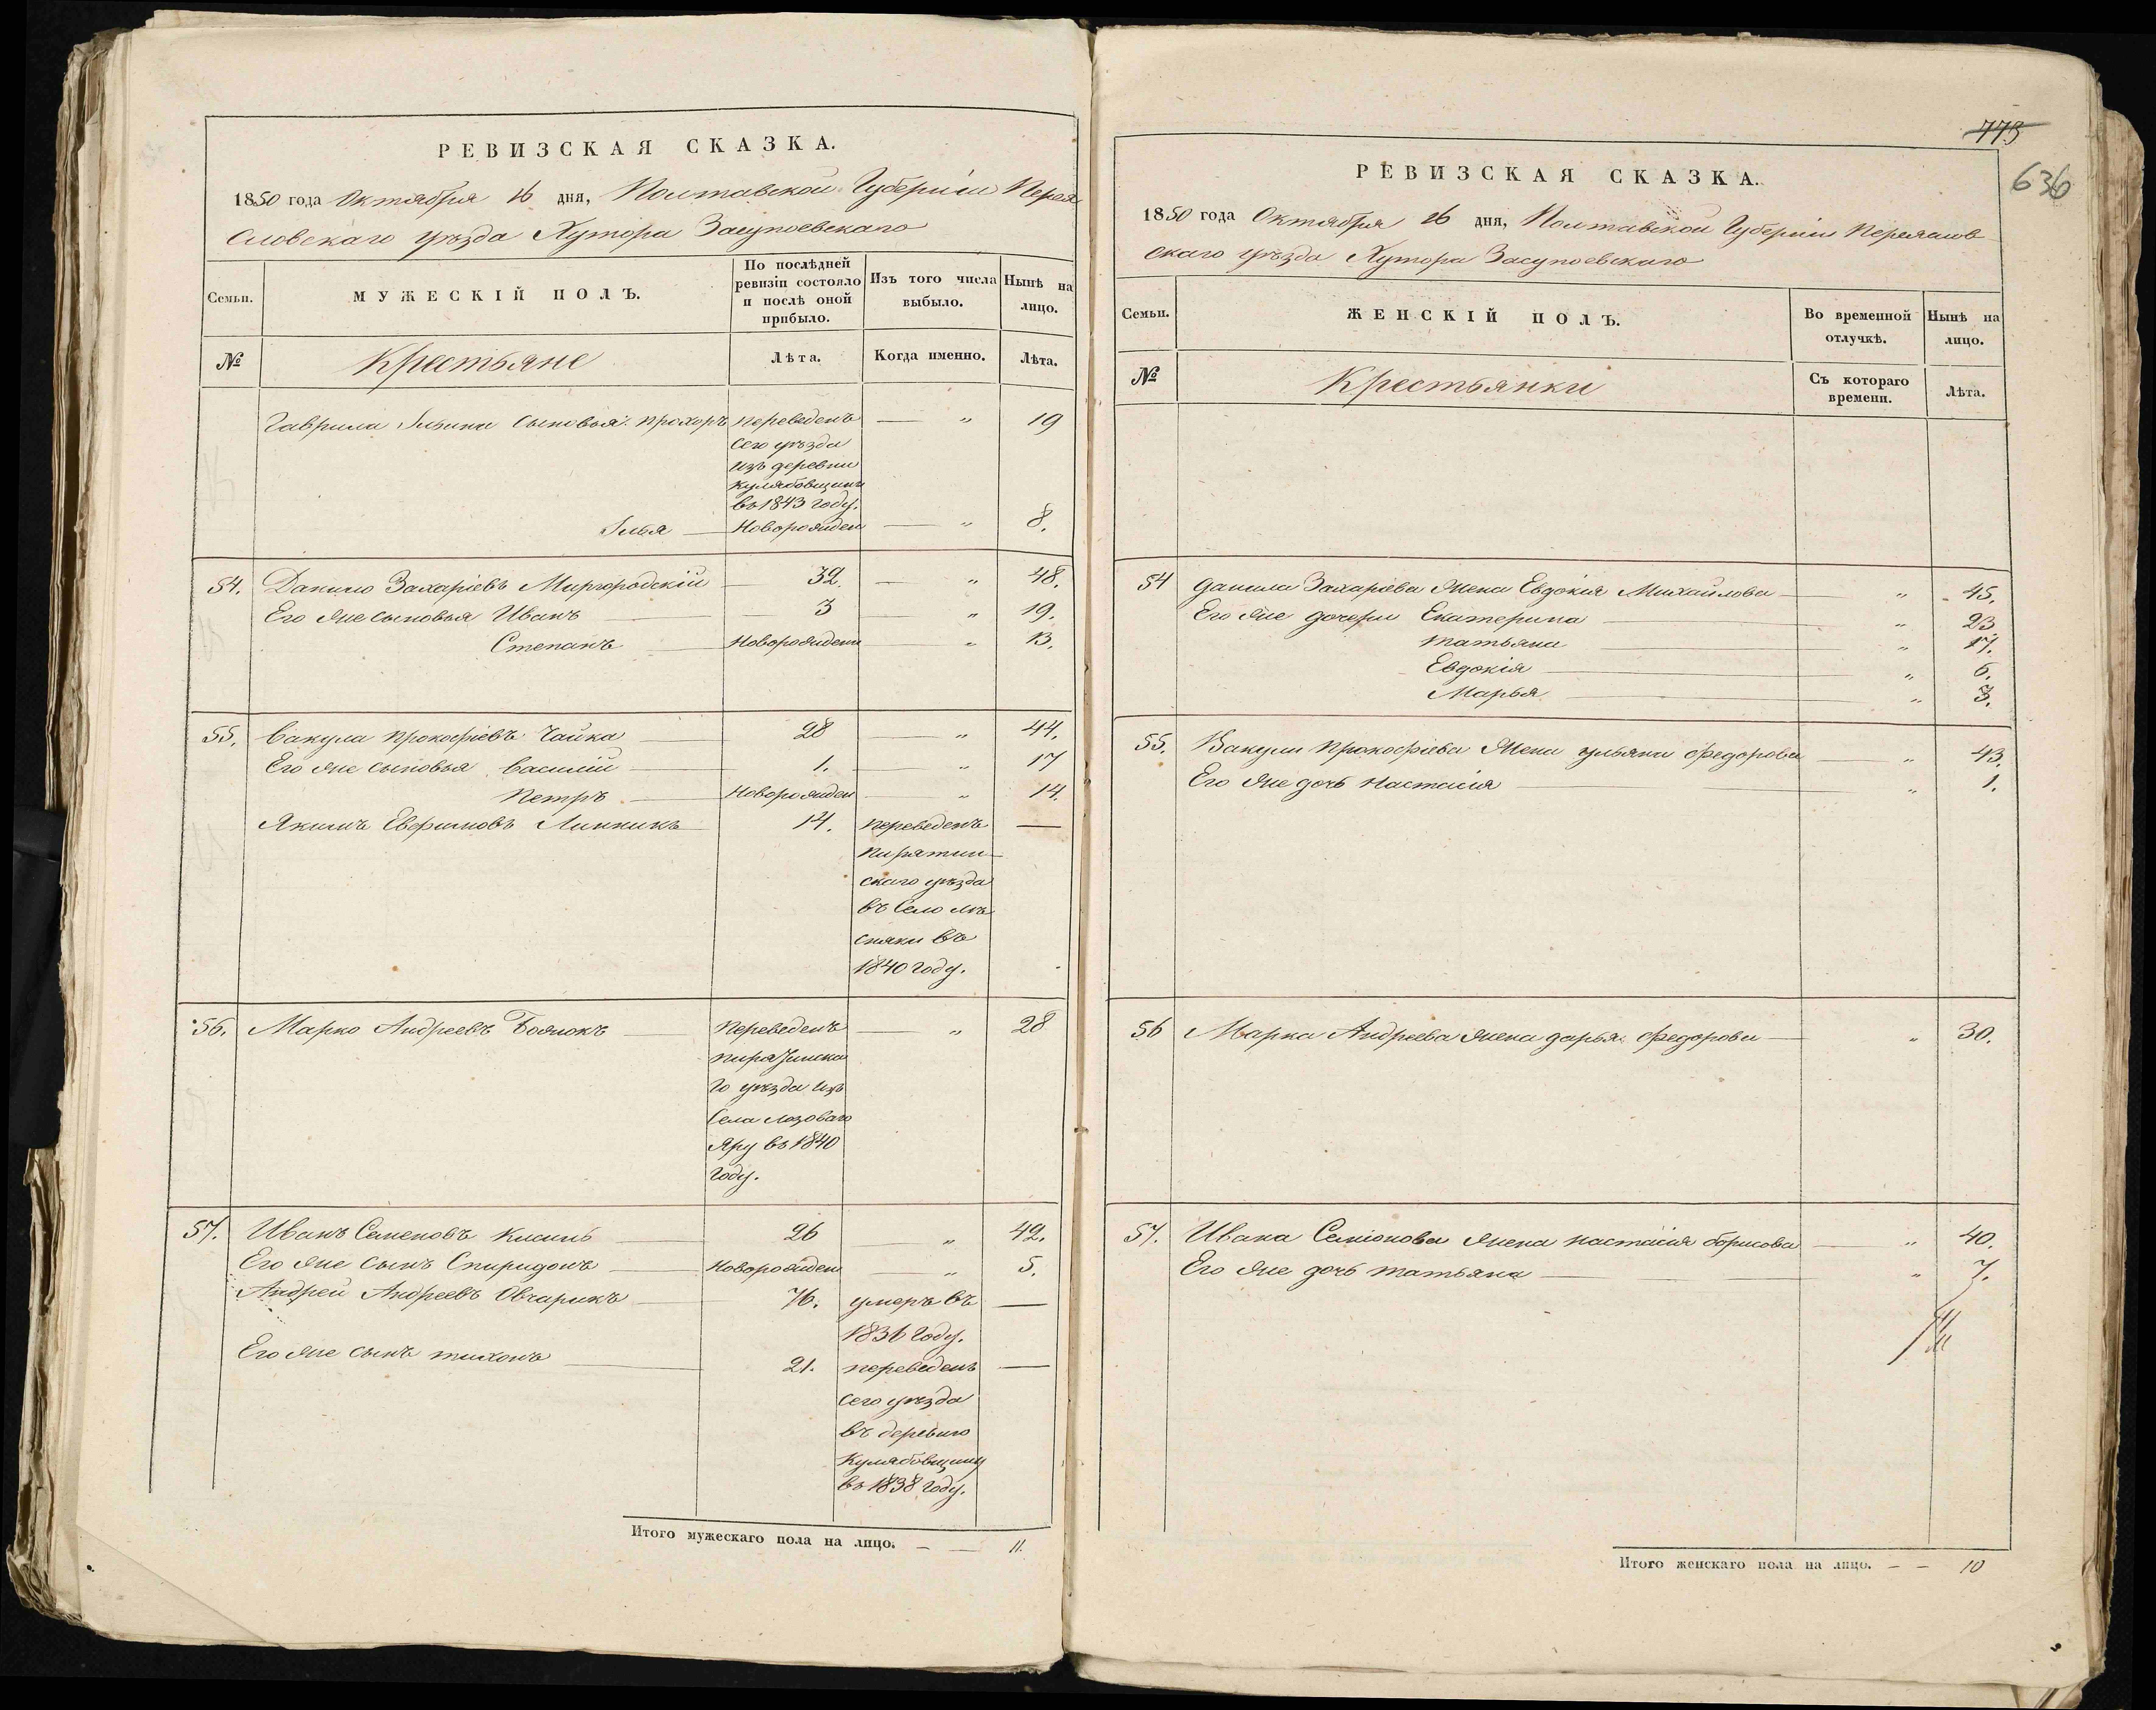 РЕВИЗСКАЯ СКАЗКА.
1850 года Октября 16 дня, Полтавской Губерніи Перея
словскаго уѣзда Хутора Засупоевскаго
Семьи.
МУЖЕСКІЙ ПОЛЪ.
По послѣдней
ревизіи состояло
и послѣ оной
прибыло.
Изъ того числа
выбыло.
Нынѣ на
лицо.
№
Крестьяне
Лѣта.
Когда именно.
Лѣта.
Гаврила Ильина сыновья: Прохоръ переведенъ — „ 19
сего уѣзда
изъ деревни
Кулябовщины
въ 1843 году.
Илья — Новорожден — „ 8.
54. Данило Захаріевъ Миргородскій — 32. — „ 48.
Его же сыновья Иванъ — 3 — „ 19.
Степанъ — Новорожденъ — „ 13.
55. Вакула Прокофіевъ Чайка — 28 — „ 44.
Его же сыновья Василій — 1. — „ 17
Петръ — Новорожден — „ 14.
Якимъ Евфимовъ Линникъ — 14. переведенъ —
Пирятин-
скаго уѣзда
въ село
въ
1840 году.
56. Марко Андреевъ — Переведенъ — „ 28
Пирятинска
го уѣзда изъ
села Лозоваго
Яру въ 1840
году.
57. Иванъ Семеновъ — 26 „ 42.
Его же сынъ Спиридонъ — Новорожден — „ 5.
Андрей Андреевъ Овчарикъ — 76. умеръ въ —
1836 году.
Его же сынъ Тихонъ — 21. переведенъ —
сего уѣзда
въ деревню
Кулябовщину
въ 1838 году.
Итого мужескаго пола на лицо. — — 11.
775
636
РЕВИЗСКАЯ СКАЗКА.
1850 года Октября 16 дня, Полтавской Губерніи Переяслов
скаго уѣзда Хутора Засупоевскаго
Семьи.
ЖЕНСКІЙ ПОЛЪ.
Во временной
отлучкѣ.
Нынѣ на
лицо.
№
Крестьянки
Съ котораго
времени.
Лѣта.
54 Данила Захаріева жена Евдокія Михайлова — „ 45.
Его же дочери Екатерина — „ 23
Татьяна — „ 17.
Евдокія — „ 6.
Марья — „ 3.
55. Вакулы Прокофіева жена Ульяна Федорова — „ 43.
Его же дочь Настасія — „ 1.
56 Марка Андреева жена Дарья Федорова — „ 30.
57. Ивана Семіонова жена Настасія Борисова — „ 40.
Его же дочь Татьяна — „ 7.
Итого женскаго пола на лицо. — — 10